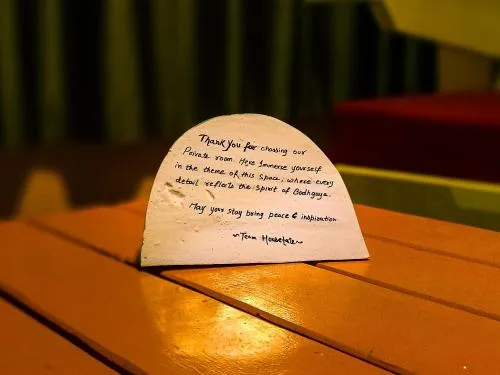 Thank you for choosing our
Private room. Here Immerse yourself
in the theme of this space, where every
detail reflects the spirit of Bodhgaya.
May your stay bring peace & inspiration
~Team Hosteltale~